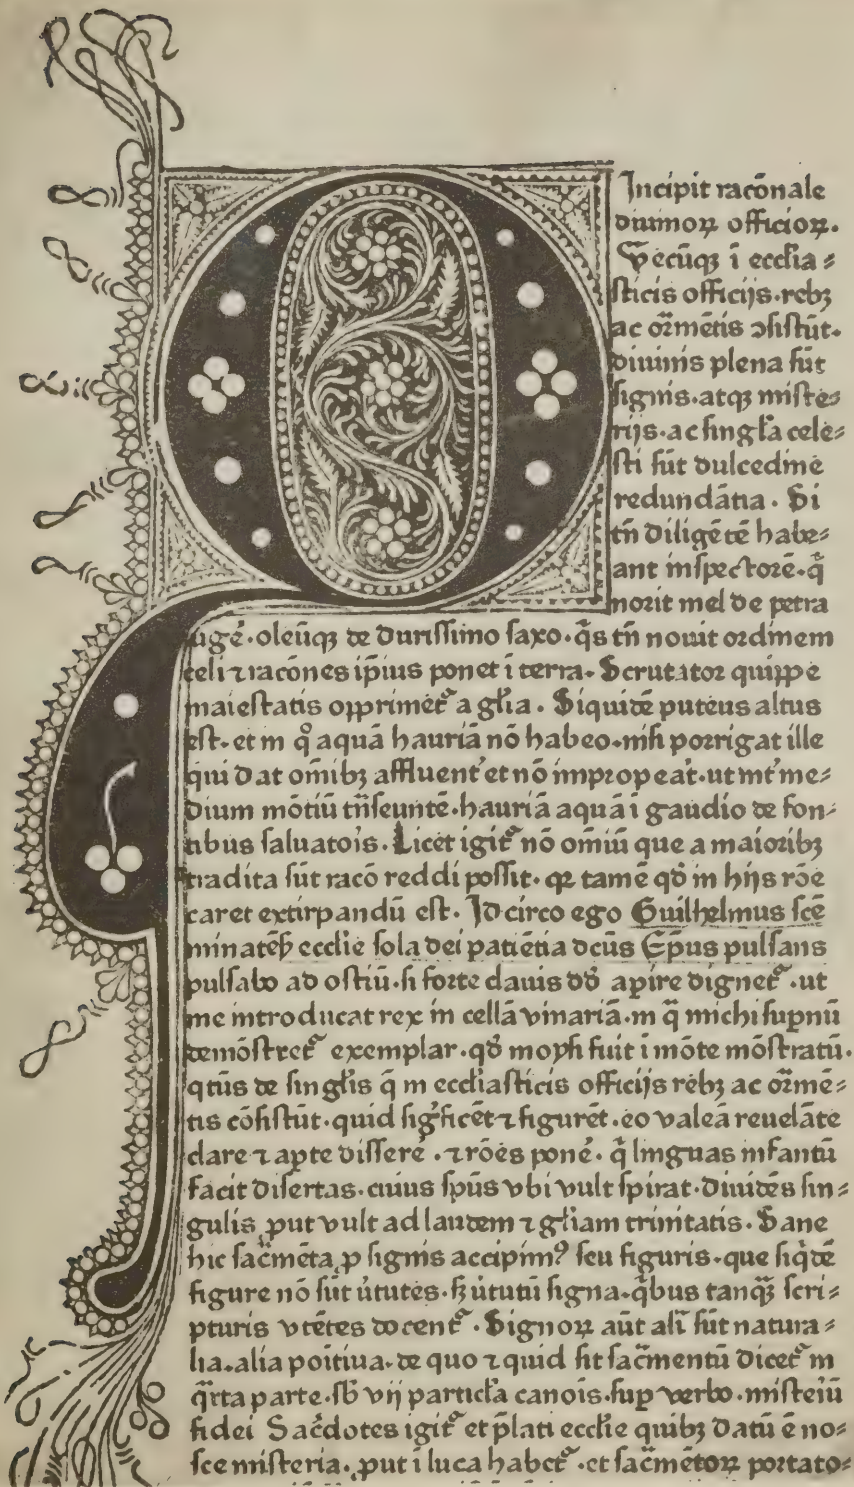 Incipit racōnale
diuinoꝝ officioꝝ.
Q̄ecūqꝫ ī eccl̄ia⸗
sticis officijs·rebꝫ
ac oȓmētis ꝯsistūt·
diuinis plena sūt
signis·atqꝫ miste⸗
rijs·ac singl̓a cele⸗
sti sūt dulcedine
redundātia· Si
tn̄ diligētē habe⸗
ant inspectorē·q̄
norit mel de petra
sugē·oleūqꝫ de durissimo saxo·q̄s tn̄ nouit ordinem
celi ⁊ racōnes ip̄ius ponet ī terra· Scrutator quippe
maiestatis opprimet᷑ a gl̄ia· Siquidē puteus altus
est·et in q° aquā hauriā nō habeo·nisi porrigat ille
qui dat om̄ibꝫ affluent̓ et nō improp̄eat·ut int̓ me⸗
dium mōtiū tn̄seuntē·hauriā aquā ī gaudio de fon⸗
tibus saluatoīs· Licet igit᷑ nō om̄iū que a maioribꝫ
tradita sūt racō reddi possit· qꝛ tamē qd̓ in hijs rōe
caret extirpandū est· Idcirco ego Guilhelmus scē
minateꝭ eccl̄ie sola dei patiētia dc̄us Ep̄us pulsans
pulsabo ad ostiū·si forte clauis dd̓ ap̄ire dignet᷑·ut
me introducat rex in cellā vinariā·in q̄ michi sup̄nū
demōstret᷑ exemplar·qd̓ moysi fuit ī mōte mōstratū·
qt̄us de singl̓is q̄ in eccl̄iasticis officijs rebꝫ ac oȓmē⸗
tis cōsistūt·quid sig̓ficēt ⁊ figurēt·eo valeā reuelāte
clare ⁊ apte disserē·⁊ rōes ponē·q̄ linguas infantū
facit disertas·cuius sp̄us vbi vult spirat·diuidēs sin⸗
gulis ꝓut vult ad laudem ⁊ gl̄iam trinitatis· Sane
hic sac̄mēta ꝓ signis accipimꝰ seu figuris·que siq̓dē
figure nō sūt v̓tutes·sꝫ v̓tutū signa·q̓bus tanqꝫ̄ scri⸗
pturis vtētes docent᷑· Signoꝝ aūt alī sūt natura⸗
lia·alia poītiua·de quo ⁊ quid sit sac̄mentū dicet᷑ in
q̄rta parte·sb̄ vij particl̓a canoīs·suꝑ verbo·misteīū
fidei Sac̓dotes igit᷑ et p̄lati eccl̄ie quibꝫ datū ē no⸗
sce misteria·ꝓut ī luca habet᷑·et sac̄mētoꝝ portato⸗